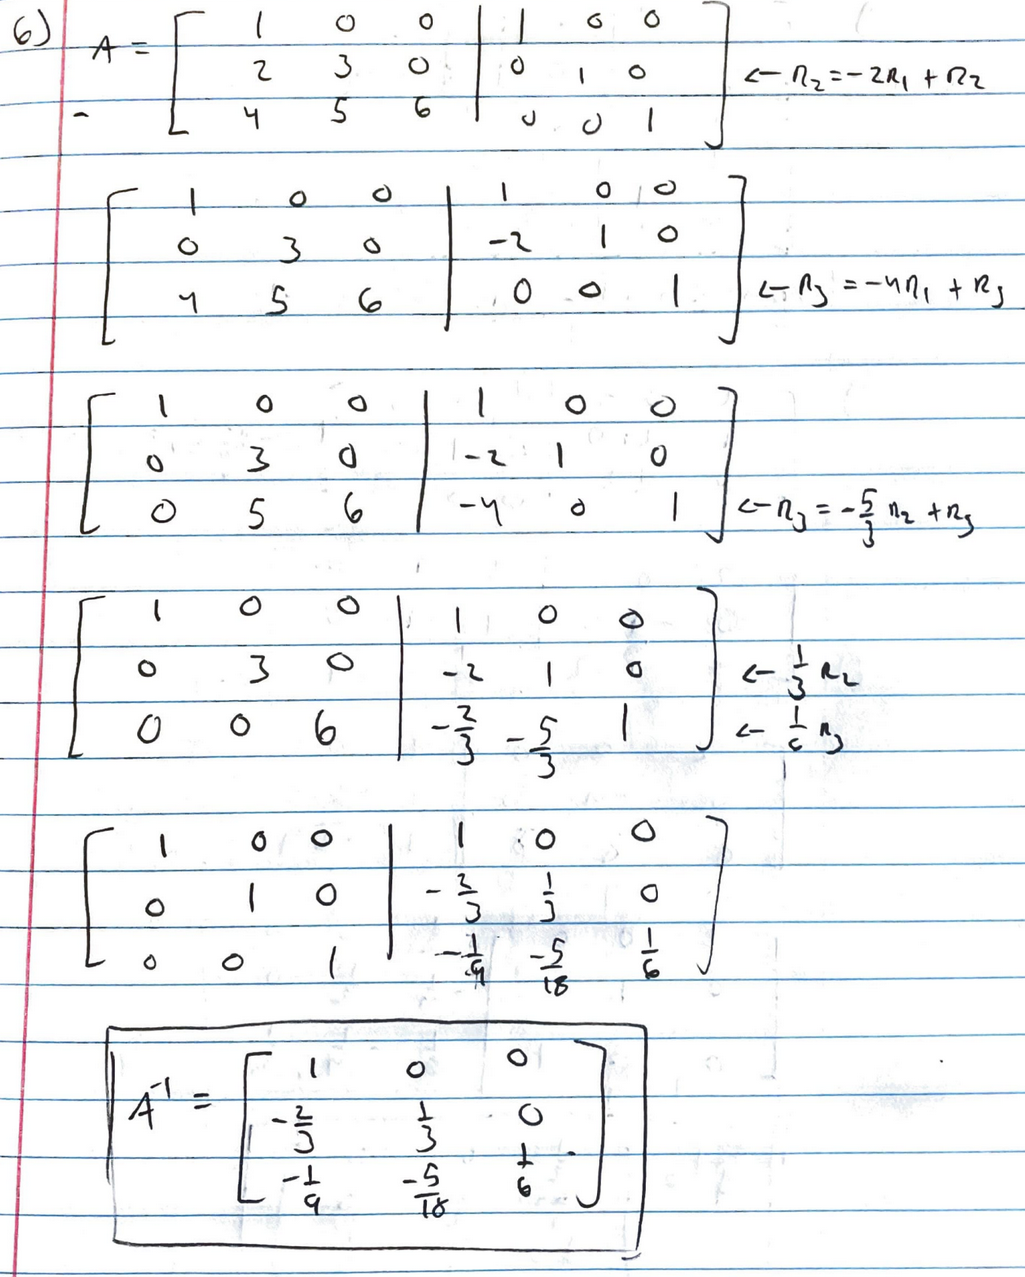 6) A = [ 1 0 0 | 1 0 0 ]
[ 2 3 0 | 0 1 0 ] ← R₂ = -2R₁ + R₂
[ 4 5 6 | 0 0 1 ]
[ 1 0 0 | 1 0 0 ]
[ 0 3 0 | -2 1 0 ]
[ 4 5 6 | 0 0 1 ] ← R₃ = -4R₁ + R₃
[ 1 0 0 | 1 0 0 ]
[ 0 3 0 | -2 1 0 ]
[ 0 5 6 | -4 0 1 ] ← R₃ = -5/3 R₂ + R₃
[ 1 0 0 | 1 0 0 ]
[ 0 3 0 | -2 1 0 ] ← 1/3 R₂
[ 0 0 6 | -2/3 -5/3 1 ] ← 1/6 R₃
[ 1 0 0 | 1 0 0 ]
[ 0 1 0 | -2/3 1/3 0 ]
[ 0 0 1 | -1/9 -5/18 1/6 ]
A⁻¹ = [ 1 0 0 ]
[ -2/3 1/3 0 ]
[ -1/9 -5/18 1/6 ]